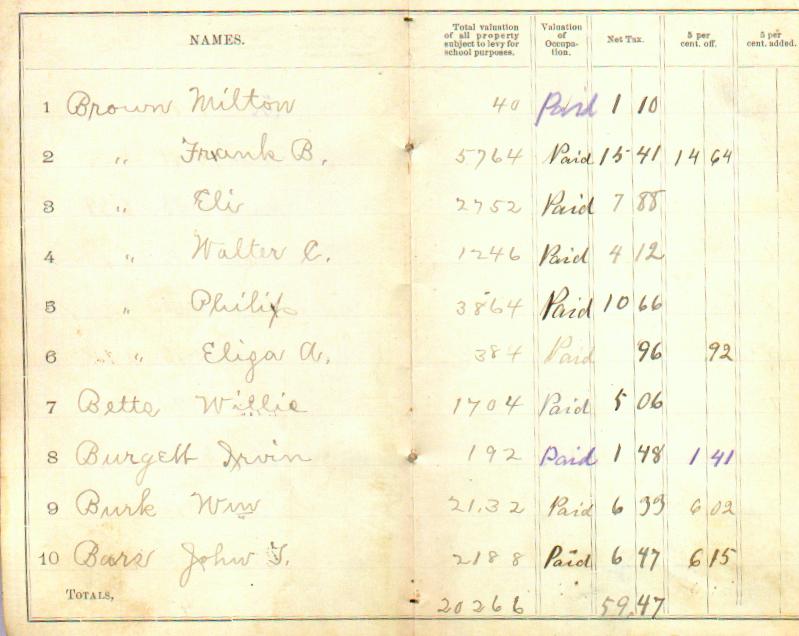 NAMES. Total valuation of all property subject to levy for school purposes. Valuation of Occupa-tion. Net Tax. 5 per cent. off. 5 per cent. added.
1 Brown Milton 40 Paid 1 10
2 " Frank B. 5764 Paid 15 41 14 64
3 " Eli 2752 Paid 7 88
4 " Walter C. 1246 Paid 4 12
5 " Philip 3864 Paid 10 66
6 " Eliza A. 384 Paid 96 92
7 Betts Willie 1704 Paid 5 06
8 Burgett Irvin 192 Paid 1 48 1 41
9 Burk Wm 2132 Paid 6 33 6 02
10 John 2188 Paid 6 47 6 15
TOTALS, 20266 59.47